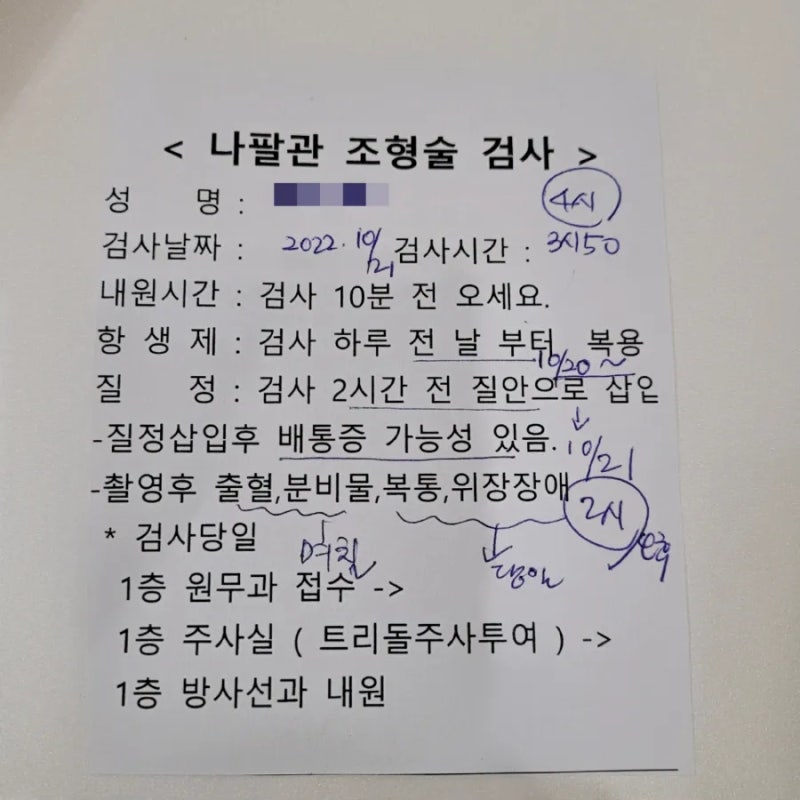 < 나팔관 조형술 검사 >
성 명 : 4시
검사날짜 : 2022. 10/21 검사시간 : 3시50
내원시간 : 검사 10분 전 오세요.
항 생 제 : 검사 하루 전 날 부터 복용
10/20 ~
질 정 : 검사 2시간 전 질안으로 삽입
↓
-질정삽입후 배통증 가능성 있음. 10/21
-촬영후 출혈,분비물,복통,위장장애 2시
* 검사당일 며칠 당일
1층 원무과 접수 ->
1층 주사실 ( 트리돌주사투여 ) ->
1층 방사선과 내원